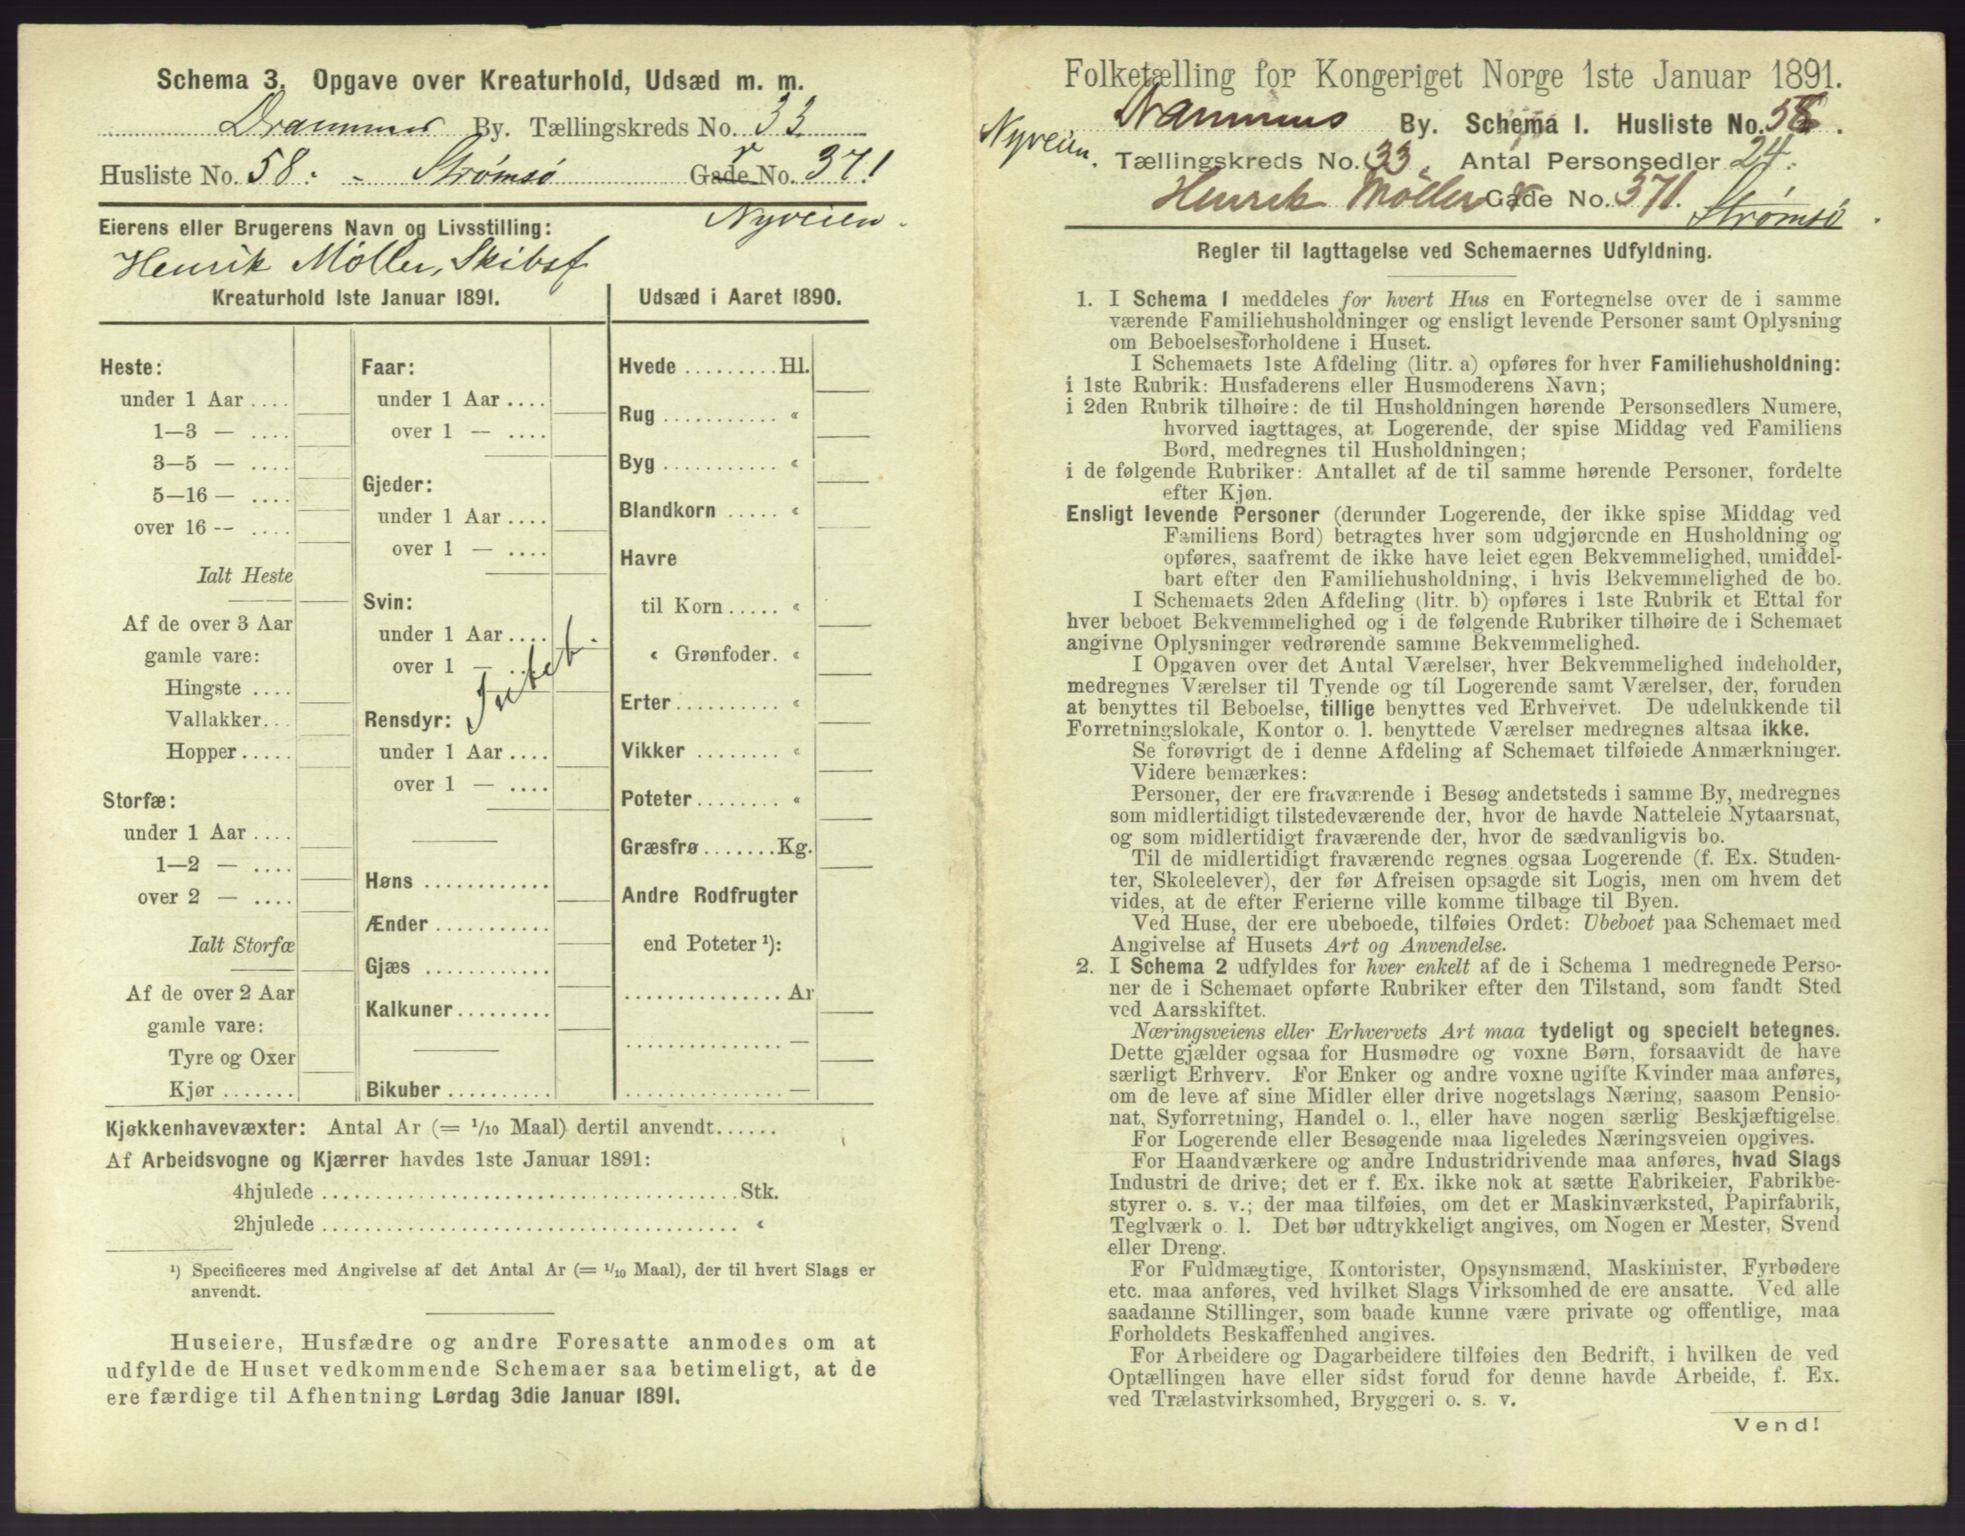 Schema 3. Opgave over Kreaturhold, Udsæd m. m.
Drammens By. Tællingskreds No. 33
Husliste No. 58. - Strømsø Gade No. 371
Nyveien.
Eierens eller Brugerens Navn og Livsstilling:
Henrik Møller, Skibsf
Kreaturhold 1ste Januar 1891.
Heste:
under 1 Aar ....
1—3 — ....
3—5 — ....
5—16 — ....
over 16 -- ....
Ialt Heste
Af de over 3 Aar
gamle vare:
Hingste ....
Vallakker...
Hopper.....
Storfæ:
under 1 Aar ....
1—2 — ....
over 2 — ....
Ialt Storfæ
Af de over 2 Aar
gamle vare:
Tyre og Oxer
Kjør .......
Faar:
under 1 Aar ....
over 1 — ....
Gjeder:
under 1 Aar ....
over 1 — ....
Svin:
under 1 Aar ....
over 1 — ....
Intet.
Rensdyr:
under 1 Aar ....
over 1 — ....
Høns ............
Ænder ...........
Gjæs ............
Kalkuner.........
Bikuber ..........
Udsæd i Aaret 1890.
Hvede .........Hl.
Rug ........... «
Byg ........... «
Blandkorn ..... «
Havre
til Korn ..... «
« Grønfoder. «
Erter.......... «
Vikker ........ «
Poteter........ «
Græsfrø .......Kg.
Andre Rodfrugter
end Poteter ¹):
............... Ar
............... —
............... —
Kjøkkenhavevæxter: Antal Ar (= 1/10 Maal) dertil anvendt......
Af Arbeidsvogne og Kjærrer havdes 1ste Januar 1891:
4hjulede ......................................Stk.
2hjulede ...................................... «
¹) Specificeres med Angivelse af det Antal Ar (= 1/10 Maal), der til hvert Slags er
anvendt.
Huseiere, Husfædre og andre Foresatte anmodes om at
udfylde de Huset vedkommende Schemaer saa betimeligt, at de
ere færdige til Afhentning Lørdag 3die Januar 1891.
Folketælling for Kongeriget Norge 1ste Januar 1891.
Drammens By. Schema 1. Husliste No. 58.
Nyveien. Tællingskreds No. 33. Antal Personsedler 24.
Henrik Møller Gade No. 371. Strømsø.
Regler til Iagttagelse ved Schemaernes Udfyldning.
1. I Schema 1 meddeles for hvert Hus en Fortegnelse over de i samme
værende Familiehusholdninger og ensligt levende Personer samt Oplysning
om Beboelsesforholdene i Huset.
I Schemaets 1ste Afdeling (litr. a) opføres for hver Familiehusholdning:
i 1ste Rubrik: Husfaderens eller Husmoderens Navn;
i 2den Rubrik tilhøire: de til Husholdningen hørende Personsedlers Numere,
hvorved iagttages, at Logerende, der spise Middag ved Familiens
Bord, medregnes til Husholdningen;
i de følgende Rubriker: Antallet af de til samme hørende Personer, fordelte
efter Kjøn.
Ensligt levende Personer (derunder Logerende, der ikke spise Middag ved
Familiens Bord) betragtes hver som udgjørende en Husholdning og
opføres, saafremt de ikke have leiet egen Bekvemmelighed, umiddel-
bart efter den Familiehusholdning, i hvis Bekvemmelighed de bo.
I Schemaets 2den Afdeling (litr. b) opføres i 1ste Rubrik et Ettal for
hver beboet Bekvemmelighed og i de følgende Rubriker tilhøire de i Schemaet
angivne Oplysninger vedrørende samme Bekvemmelighed.
I Opgaven over det Antal Værelser, hver Bekvemmelighed indeholder,
medregnes Værelser til Tyende og til Logerende samt Værelser, der, foruden
at benyttes til Beboelse, tillige benyttes ved Erhvervet. De udelukkende til
Forretningslokale, Kontor o. l. benyttede Værelser medregnes altsaa ikke.
Se forøvrigt de i denne Afdeling af Schemaet tilføiede Anmærkninger.
Videre bemærkes:
Personer, der ere fraværende i Besøg andetsteds i samme By, medregnes
som midlertidigt tilstedeværende der, hvor de havde Natteleie Nytaarsnat,
og som midlertidigt fraværende der, hvor de sædvanligvis bo.
Til de midlertidigt fraværende regnes ogsaa Logerende (f. Ex. Studen-
ter, Skoleelever), der før Afreisen opsagde sit Logis, men om hvem det
vides, at de efter Ferierne ville komme tilbage til Byen.
Ved Huse, der ere ubeboede, tilføies Ordet: Ubeboet paa Schemaet med
Angivelse af Husets Art og Anvendelse.
2. I Schema 2 udfyldes for hver enkelt af de i Schema 1 medregnede Perso-
ner de i Schemaet opførte Rubriker efter den Tilstand, som fandt Sted
ved Aarsskiftet.
Næringsveiens eller Erhvervets Art maa tydeligt og specielt betegnes.
Dette gjælder ogsaa for Husmødre og voxne Børn, forsaavidt de have
særligt Erhverv. For Enker og andre voxne ugifte Kvinder maa anføres,
om de leve af sine Midler eller drive nogetslags Næring, saasom Pensio-
nat, Syforretning, Handel o. l., eller have nogen særlig Beskjæftigelse.
For Logerende eller Besøgende maa ligeledes Næringsveien opgives.
For Haandværkere og andre Industridrivende maa anføres, hvad Slags
Industri de drive; det er f. Ex. ikke nok at sætte Fabrikeier, Fabrikbe-
styrer o. s. v.; der maa tilføies, om det er Maskinværksted, Papirfabrik,
Teglværk o. l. Det bør udtrykkeligt angives, om Nogen er Mester, Svend
eller Dreng.
For Fuldmægtige, Kontorister, Opsynsmænd, Maskinister, Fyrbødere
etc. maa anføres, ved hvilket Slags Virksomhed de ere ansatte. Ved alle
saadanne Stillinger, som baade kunne være private og offentlige, maa
Forholdets Beskaffenhed angives.
For Arbeidere og Dagarbeidere tilføies den Bedrift, i hvilken de ved
Optællingen have eller sidst forud for denne havde Arbeide, f. Ex.
ved Trælastvirksomhed, Bryggeri o. s. v.
Vend!